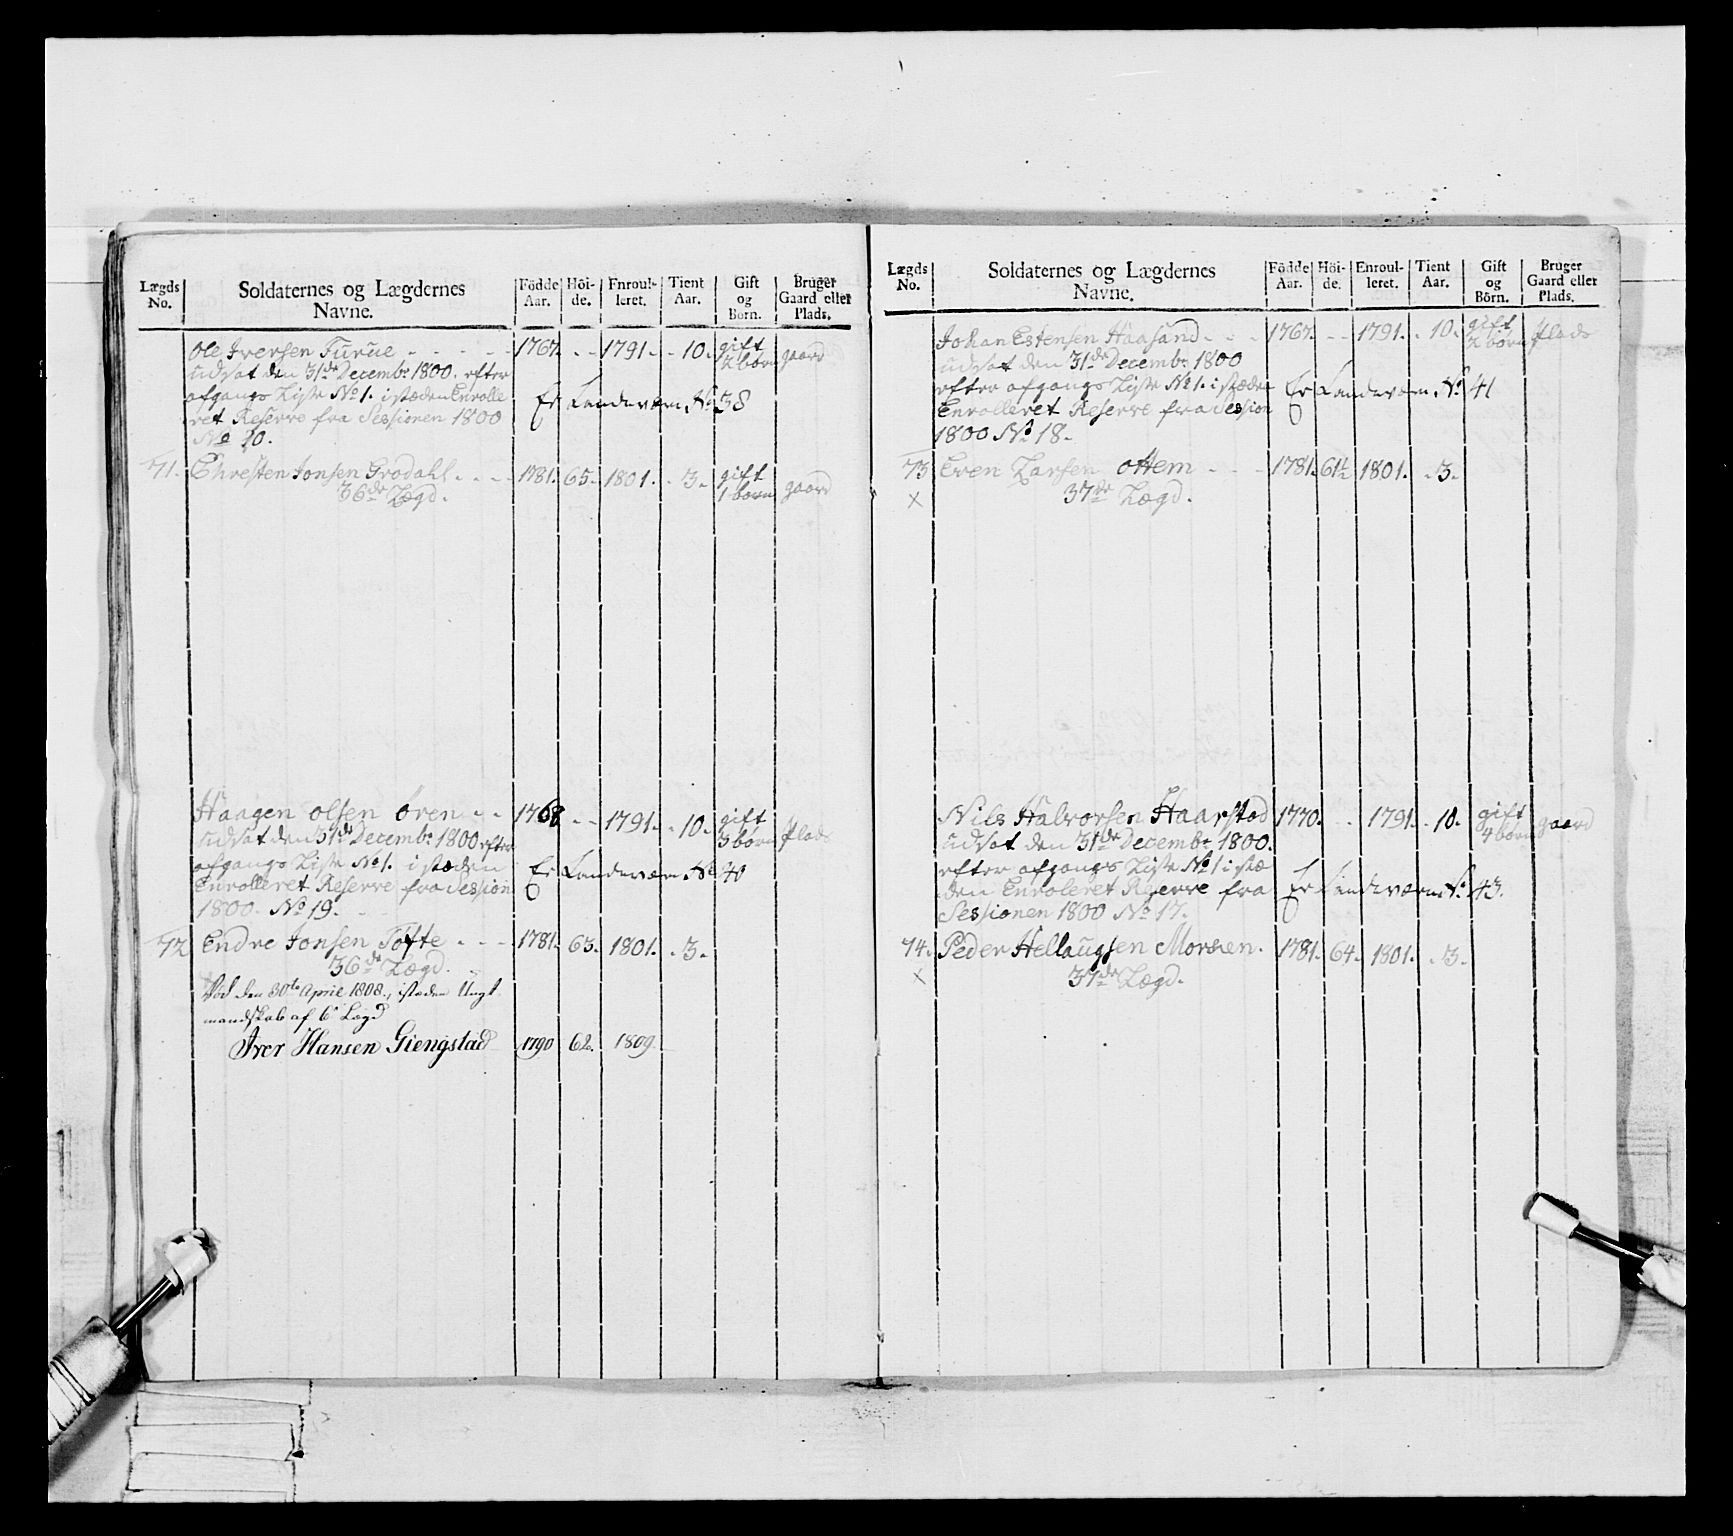 Lægds No.
Soldaternes og Lægdernes Navne.
Födde Aar.
Höide.
Enroulleret.
Tient Aar.
Gift og Börn.
Bruger Gaard eller Plads.
Ole Iversen Furue - - - - - 1767. - - 1791. - 10. gift 2 börn gaard
udsat den 31de Decembr 1800. efter
afgangs Liste No 1. istæden Enrolle
ret Reserve fra Sessionen 1800
No 20.
Er Landeværn No 38
71. Chresten Jonsen Grødahl - - - 1781. 65. 1801. - 3. gift 1 børn gaard
36de Lægd.
Haagen Olsen Ören - - 1768 - - 1791. - 10. gift 3 børn Plads
udsat den 31de Decembr 1800 efter
afgangs Liste No 1. istæden
Enrolleret Reserve fra Session
1800. No 19.
Er Landeværn No 40
72 Endre Jonsen Tofte - - - 1781. 63. 1801. - 3.
36de Lægd.
Död den 30te April 1808., istæden Ungt
mandskab af 6 Lægd
Iver Hansen Giengstad 1790 62. 1809.
Lægds No.
Soldaternes og Lægdernes Navne.
Födde Aar.
Höide.
Enroulleret.
Tient Aar.
Gift og Börn.
Bruger Gaard eller Plads.
Johan Estensen Haasand - - - 1767. - - 1791. - 10. gift 2 börn Plads
udsat den 31de Decembr 1800
efter afgangs Liste No 1. istæden
Enrolleret Reserve fra Session
1800 No 18.
Er Landeværn No. 41
73 Even Larsen Ottem - - - 1781. 61½ 1801. - 3.
× 37de Lægd.
Nils Halvorsen Haarstad 1770. - - 1791. - 10. gift 4 børn gaard
udsat den 31de Decembr 1800.
efter afgangs Liste No 1 istæ
den Enroleret Reserve fra
Sessionen 1800 No 17.
Er Landeværn No. 43.
74. Peder Hellaugsen Morsen. 1781. 64. 1801. - 3.
× 37de Lægd.